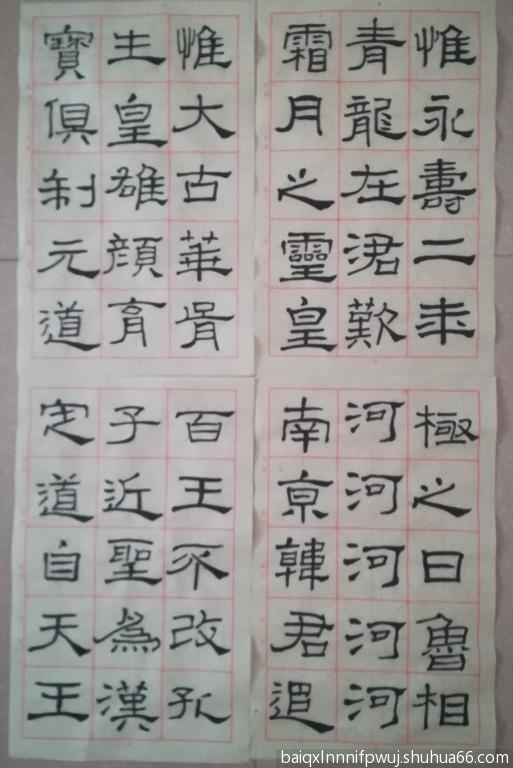 惟永壽二年
青龍在涒歎
霜月之靈皇
極之日魯相
河河河河河
南京韓君追
惟大古華胥
生皇雄顏育
寶俱制元道
百王不改孔
子近聖為漢
定道自天王
baiqxlnnnifpwuj.shuhua66.com